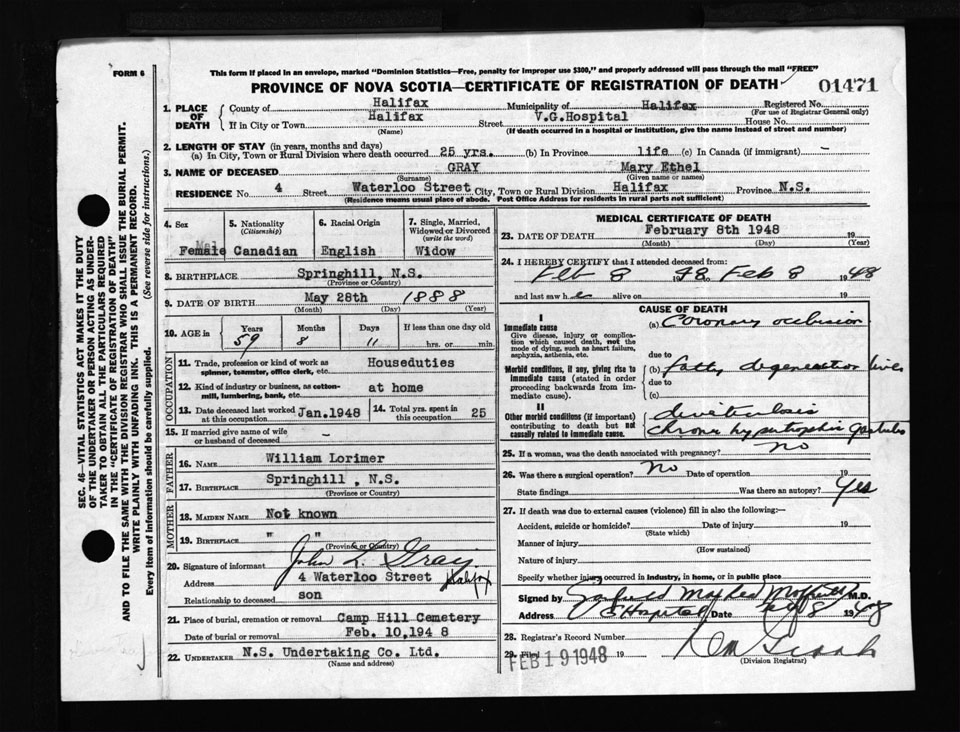 FORM 6
This form if placed in an envelope, marked "Dominion Statistics—Free, penalty for improper use $300," and properly addressed will pass through the mail "FREE"
PROVINCE OF NOVA SCOTIA—CERTIFICATE OF REGISTRATION OF DEATH 01471
1. PLACE OF DEATH
County of Halifax Municipality of Halifax Registered No.
(For use of Registrar General only)
If in City or Town Halifax Street V.G.Hospital House No.
(Name) (If death occurred in a hospital or institution, give the name instead of street and number)
2. LENGTH OF STAY (in years, months and days)
(a) In City, Town or Rural Division where death occurred 25 yrs. (b) In Province life (c) In Canada (if immigrant) -
3. NAME OF DECEASED GRAY Mary Ethel
(Surname) (Given name or names)
RESIDENCE No. 4 Street Waterloo Street City, Town or Rural Division Halifax Province N.S.
(Residence means usual place of abode. Post Office Address for residents in rural parts not sufficient)
4. Sex Female
5. Nationality (Citizenship) Canadian
6. Racial Origin English
7. Single, Married, Widowed or Divorced (write the word) Widow
8. BIRTHPLACE Springhill, N.S.
(Province or Country)
9. DATE OF BIRTH May 28th 1888
(Month) (Day) (Year)
10. AGE in Years Months Days If less than one day old
59 8 11 hrs. or min.
OCCUPATION
11. Trade, profession or kind of work as spinner, teamster, office clerk, etc. Houseduties
12. Kind of industry or business, as cotton-mill, lumbering, bank, etc. at home
13. Date deceased last worked at this occupation Jan.1948
14. Total yrs. spent in this occupation 25
15. If married give name of wife or husband of deceased -
FATHER
16. NAME William Lorimer
17. BIRTHPLACE Springhill , N.S.
(Province or Country)
MOTHER
18. MAIDEN NAME Not known
19. BIRTHPLACE " "
(Province or Country)
20. Signature of informant John L. Gray
Address 4 Waterloo Street Halifax
Relationship to deceased son
21. Place of burial, cremation or removal Camp Hill Cemetery
Date of burial or removal Feb. 10,194 8
22. UNDERTAKER N.S. Undertaking Co. Ltd.
(Name and address)
MEDICAL CERTIFICATE OF DEATH
23. DATE OF DEATH February 8th 1948
(Month) (Day) (Year)
24. I HEREBY CERTIFY that I attended deceased from:
Feb 8 1948 Feb 8 1948
and last saw h alive on 19
CAUSE OF DEATH
I
Immediate cause
Give disease, injury or complication which caused death, not the mode of dying, such as heart failure, asphyxia, asthenia, etc.
(a) Coronary occlusion
due to
Morbid conditions, if any, giving rise to immediate cause (stated in order proceeding backwards from immediate cause).
(b) fatty degeneration liver
due to
(c)
II
Other morbid conditions (if important) contributing to death but not causally related to immediate cause.
chronic hypertrophic gastritis
25. If a woman, was the death associated with pregnancy? No
26. Was there a surgical operation? No Date of operation 19
State findings Was there an autopsy? Yes
27. If death was due to external causes (violence) fill in also the following:—
Accident, suicide or homicide? Date of injury 19
(State which)
Manner of injury
(How sustained)
Nature of injury
Specify whether injury occurred in industry, in home, or in public place
Signed by M.D.
Address V G Hospital Date Feb 8 1948
28. Registrar's Record Number
29. Filed FEB 19 1948 19
(Division Registrar)
SEC. 46—VITAL STATISTICS ACT MAKES IT THE DUTY
OF THE UNDERTAKER OR PERSON ACTING AS UNDER-
TAKER TO OBTAIN ALL THE PARTICULARS REQUIRED
IN THE "CERTIFICATE OF REGISTRATION OF DEATH"
AND TO FILE THE SAME WITH THE DIVISION REGISTRAR WHO SHALL ISSUE THE BURIAL PERMIT.
WRITE PLAINLY WITH UNFADING INK. THIS IS A PERMANENT RECORD.
Every item of information should be carefully supplied. (See reverse side for instructions.)